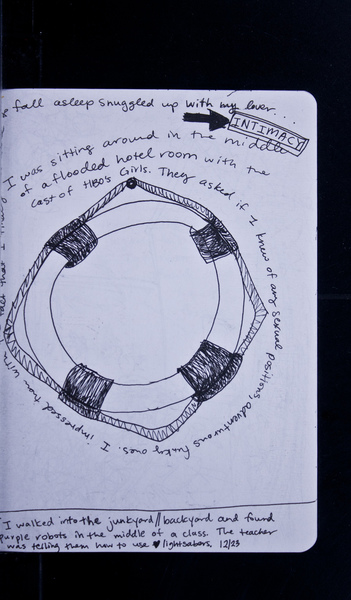 fall asleep snuggled up with my lover...
INTIMACY
I was sitting around in the middle
of a flooded hotel room with the
cast of HBO's Girls. They asked if I knew of any sexual positions, adventurous funky ones. I impressed them with
fact that I
I walked into the junkyard//backyard and found
purple robots in the middle of a class. The teacher
was telling them how to use ♥/lightsabers. 12/23